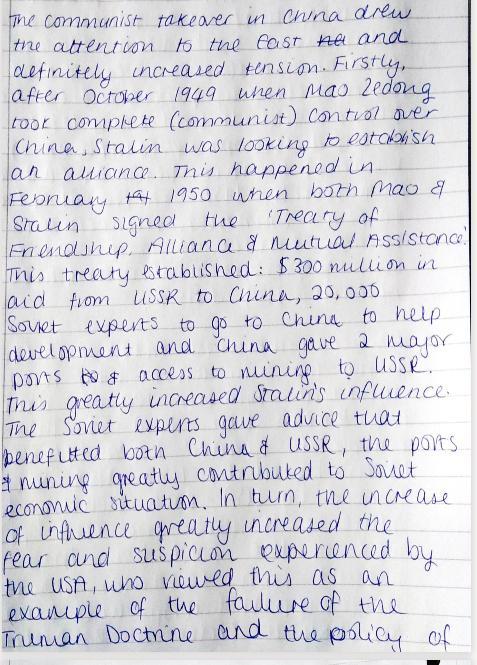 The communist takeover in China drew
the attention to the East and
definitely increased tension. Firstly,
after October 1949 when Mao Zedong
took complete (communist) control over
China, Stalin was looking to establish
an alliance. This happened in
February 1950 when both Mao &
Stalin signed the 'Treaty of
Friendship, Alliance & Mutual Assistance'.
This treaty established: $300 million in
aid from USSR to China, 20,000
Soviet experts to go to China to help
development and China gave 2 major
ports & access to mining to USSR.
This greatly increased Stalin's influence.
The Soviet experts gave advice that
benefitted both China & USSR, the ports
& mining greatly contributed to Soviet
economic situation. In turn, the increase
of influence greatly increased the
fear and suspicion experienced by
the USA, who viewed this as an
example of the failure of the
Truman Doctrine and the policy of